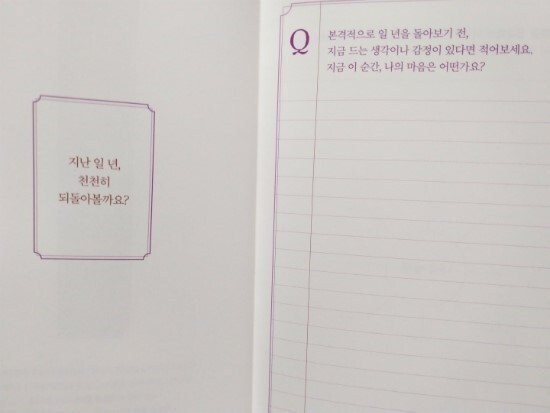 지난 일 년,
천천히
되돌아볼까요?
Q
본격적으로 일 년을 돌아보기 전,
지금 드는 생각이나 감정이 있다면 적어보세요.
지금 이 순간, 나의 마음은 어떤가요?